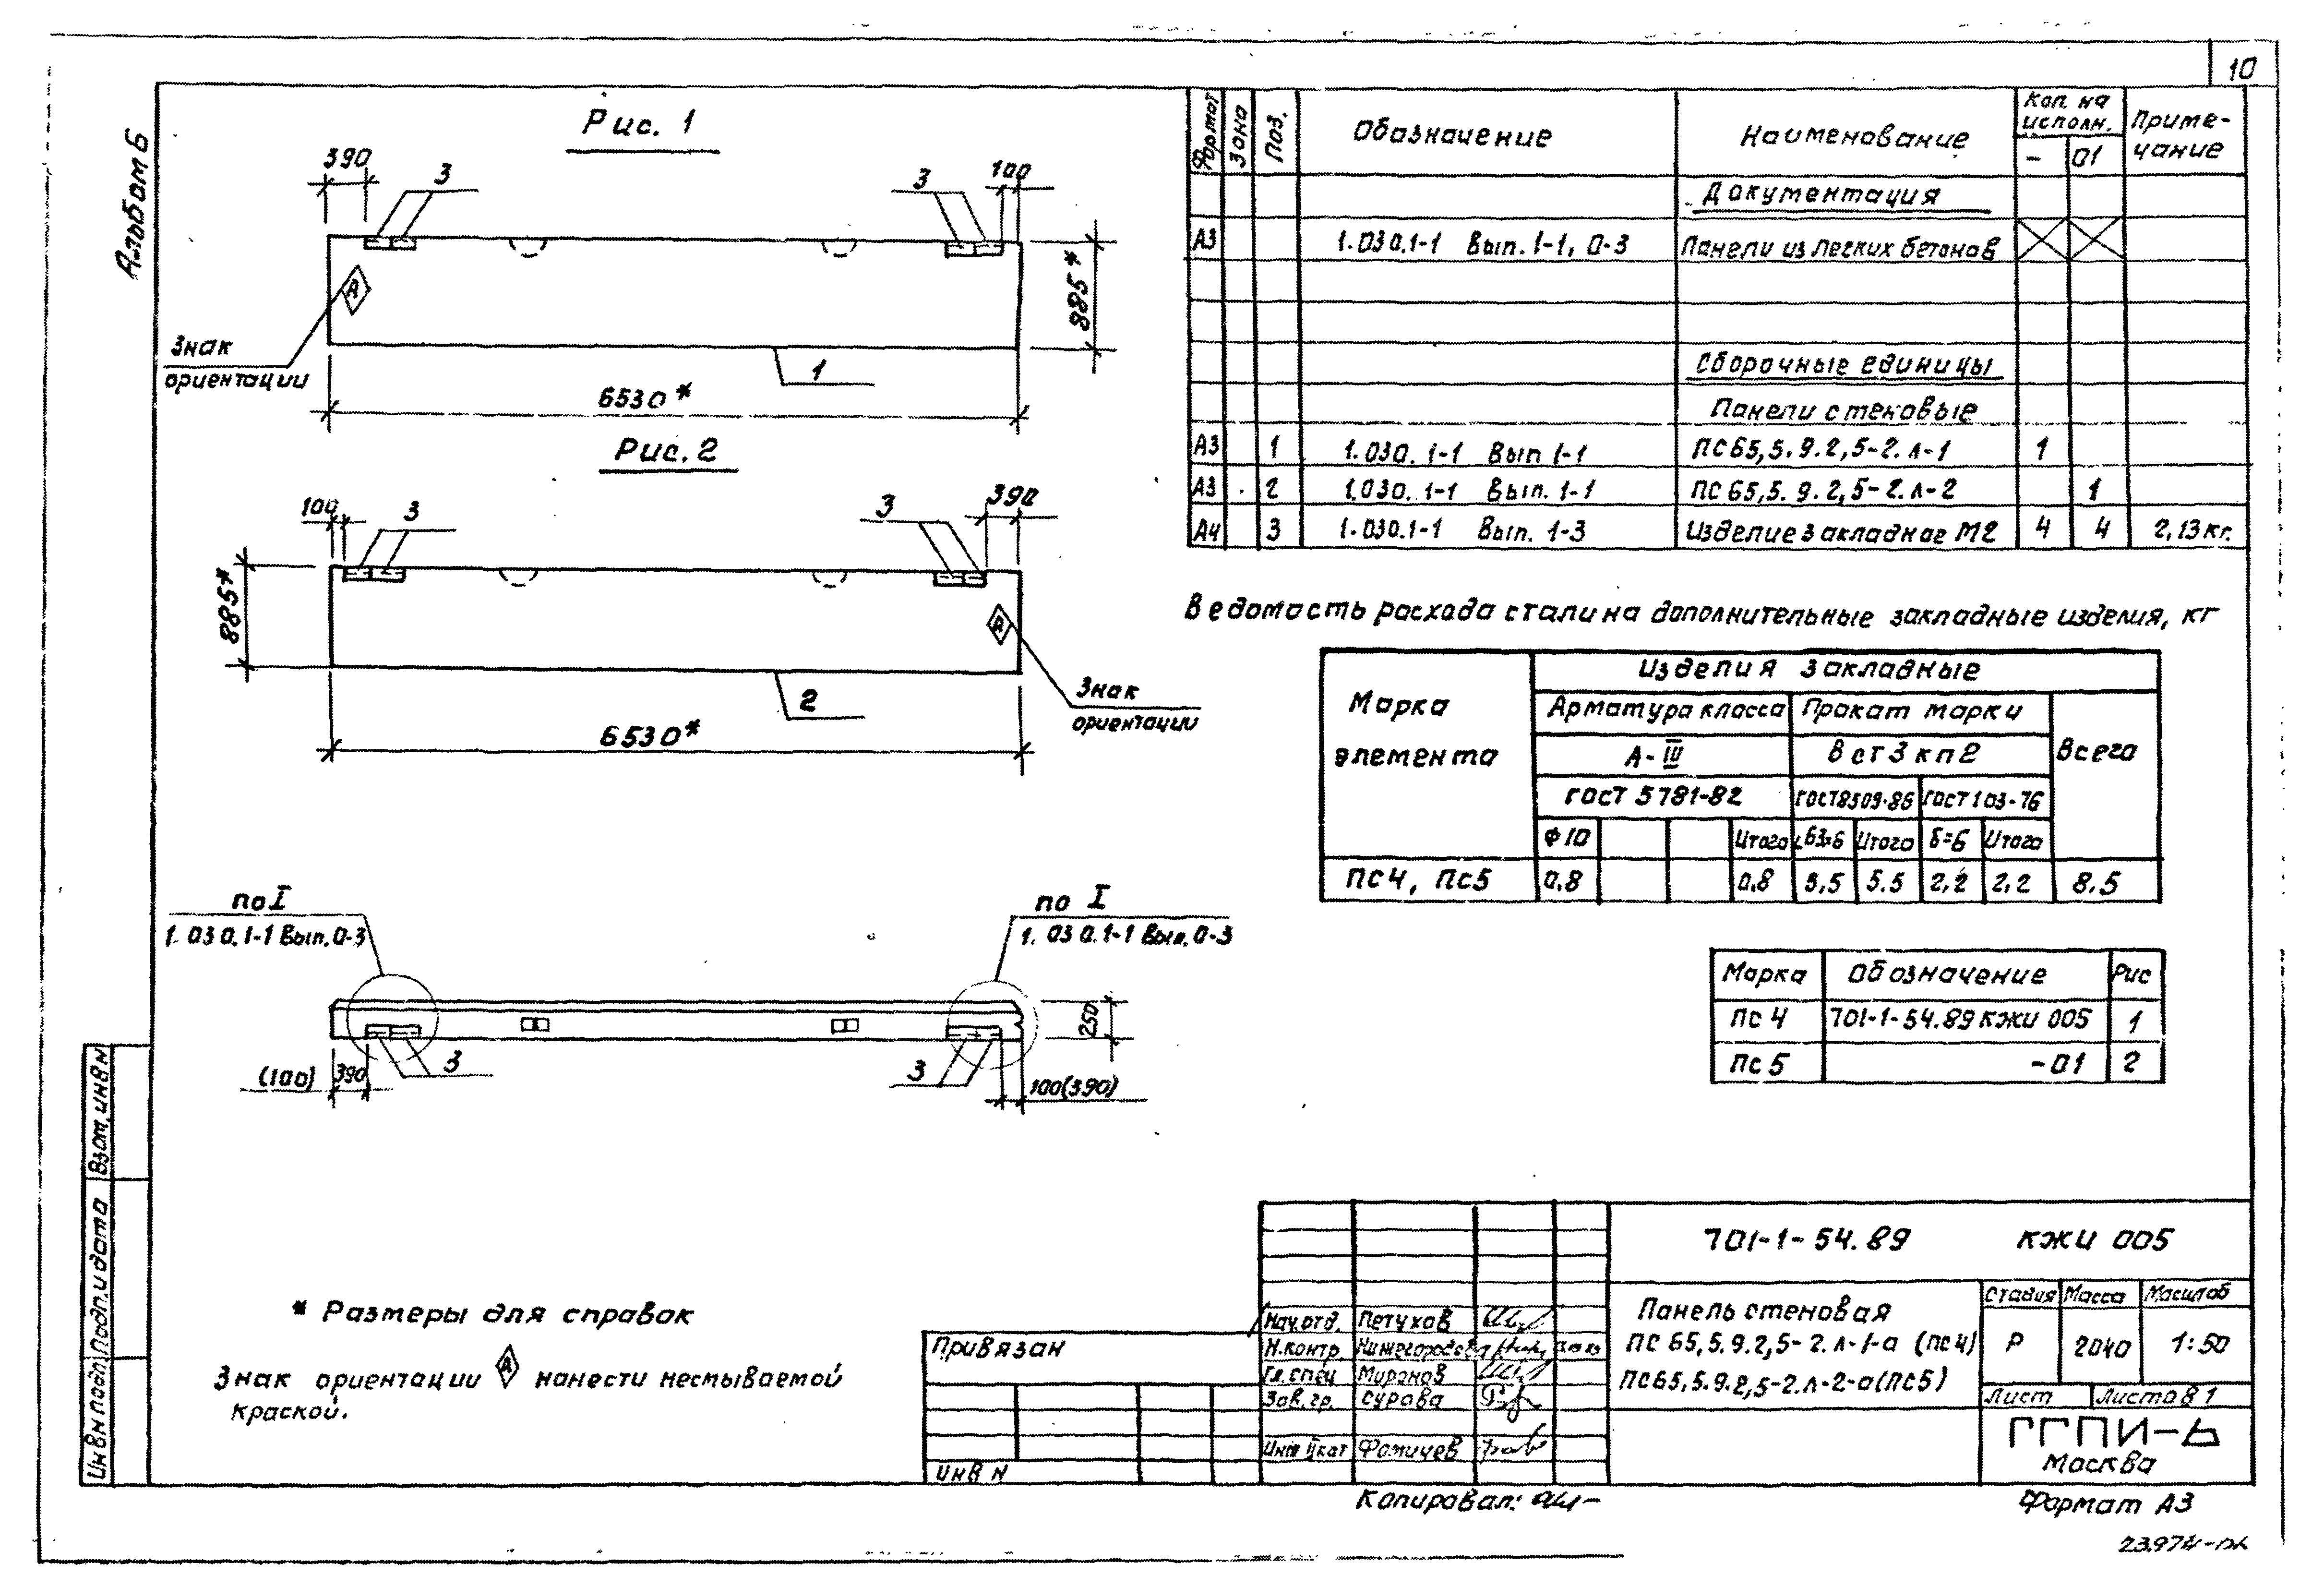 10
Альбом 6
Рис. 1
390
3
3
100
885*
А
Знак
ориентации
1
6530*
Рис. 2
100
3
3
390
885*
А
Знак
ориентации
2
6530*
по I
1.030.1-1 Вып.0-3
по I
1.030.1-1 Вып.0-3
250
(100) 390
3
3
100(390)
* Размеры для справок
Знак ориентации А нанести несмываемой
краской.
Формат Зона Поз. Обозначение Наименование Кол. на исполн. Приме-
чание
- 01
Документация
А3 1.030.1-1 Вып. 1-1, 0-3 Панели из легких бетонов
Сборочные единицы
Панели стеновые
А3 1 1.030.1-1 Вып 1-1 ПС65,5.9.2,5-2.л-1 1
А3 2 1.030.1-1 Вып. 1-1 ПС65,5.9.2,5-2.л-2 1
А4 3 1.030.1-1 Вып. 1-3 Изделие закладное М2 4 4 2,13кг.
Ведомость расхода стали на дополнительные закладные изделия, кг
Марка
элемента
Изделия закладные
Арматура класса Прокат марки
А-III Вст3кп2 Всего
ГОСТ 5781-82 ГОСТ8509-86 ГОСТ103-76
Ф10 Итого L63x6 Итого δ=6 Итого
ПС4, ПС5 0.8 0.8 5,5 5.5 2,2 2,2 8.5
Марка Обозначение Рис
ПС4 701-1-54.89 КЖИ 005 1
ПС5 -01 2
701-1-54.89 КЖИ 005
Панель стеновая
ПС 65,5.9.2,5-2.л-1-а (ПС4)
ПС65,5.9.2,5-2.л-2-а(ПС5)
Стадия Масса Масштаб
Р 2040 1:50
Лист Листов 1
ГГПИ-6
Москва
Нач.отд. Петухов
Н.контр.
Гл.спец Миронов
Зав.гр. Сурова
Инж IIкат Фомичев
Привязан
Инв N
Инв N подл Подп. и дата Взам. инв N
Копировал:
Формат А3